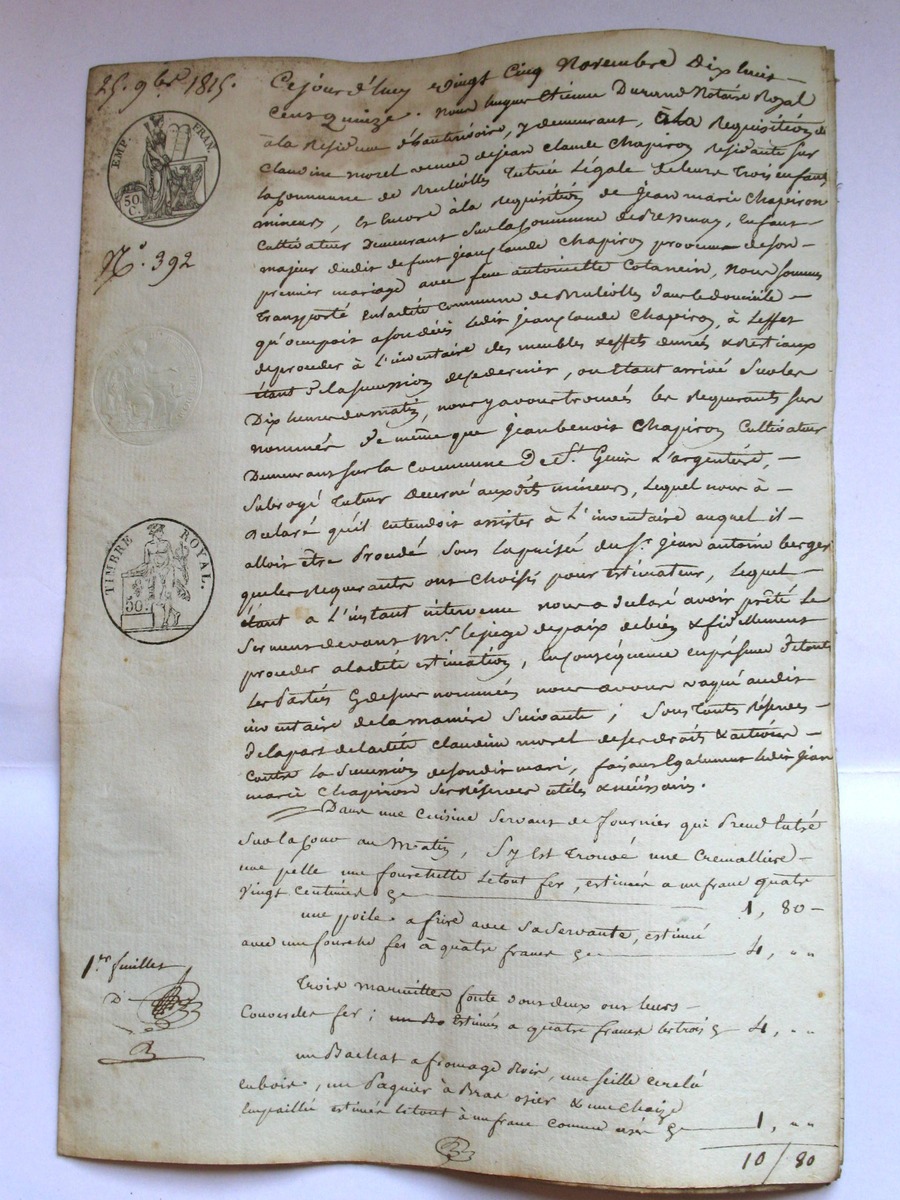 25. 9bre 1815.
EMP. FRAN
50. C.
N.o 392
TIMBRE ROYAL.
50.
1er feuillet
D
Cejourd'huy vingt Cinq Novembre Dix huit
Cent Quinze. Nous Etienne Durand Notaire Royal
à la Residence d'hauterivoire, y demeurant, à la Requisition de
Claudine morel veuve de jean Claude Chapiron residante sur
la Commune de Brulioles Tutrice Légale de leurs Trois enfants
mineurs, Et Encore à la requisition de Jean marie Chapiron
Cultivateur Demeurant sur la Commune de Bessenay, Enfant
majeur dudit defunt jean Claude Chapiron provenu de son
premier mariage avec feue antoinette, Nous sommes
Transporté en ladite Commune de Brulioles dans le domicile
qu'occupoit a son décès ledit jean Claude Chapiron, à l'effet
de proceder à L'inventaire des meubles & effets denrés & bestiaux
étant de la succession de ce dernier, ou Etant arrivé sur les
Dix heures du matin, nous y avons trouvés les Requerants sus
nommés de même que jean benoit Chapiron Cultivateur
Demeurant sur la Commune de St. Genis L'argentière,
Subrogé Tuteur décerné auxdits mineurs, Lequel nous à
déclaré qu'il entendoit assister à L'inventaire auquel il
alloit être Procédé sous la prisée du Sr. jean antoine berger
que les Requerants ont choisis pour estimateur, Lequel
étant à L'instant intervenu nous a declaré avoir prêté Le
Serment devant Mr. le juge de paix de bien & fidellement
proceder a ladite estimation, En Conséquence en présence de toutes
Les Parties Cy dessus nommées nous avons vaqué audit
inventaire de la manière Suivante; Sous Toutes Réserves
de la part de ladite claudine morel de ses droits & actions
Contre La Succession de son dit mari, faisant Egalement ledit jean
marie Chapiron Ses Réserves utiles & nécéssaires.
Dans une Cuisine Servant de fournier qui Prend Entrée
sur la Cour au Matin, S'y Est Trouvé une Cremallière
une pelle une fourchette Le tout fer, estimées a un franc quatre
vingt Centimes Cy 1, 80
une poile a frire avec Sa Servante, estimée
avec une fer à quatre francs Cy 4, " "
Trois marmittes fonte dont deux ont leurs
Couvercles fer; Estimés a quatre francs les trois Cy 4, " "
un Bachat a fromage Noir, une seille cerclé
en bois, un Pagnier à Bras osier & une Chaize
Empaillée estimés Le tout à un franc comme usé Cy 1, " "
10 / 80